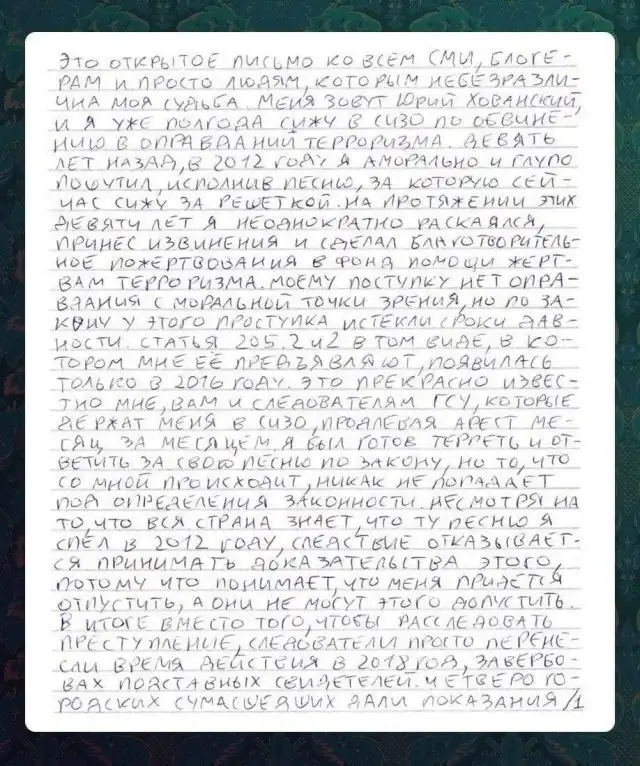 ЭТО ОТКРЫТОЕ ПИСЬМО КО ВСЕМ СМИ, БЛОГЕ-
РАМ И ПРОСТО ЛЮДЯМ, КОТОРЫМ НЕБЕЗРАЗЛИ-
ЧНА МОЯ СУДЬБА. МЕНЯ ЗОВУТ ЮРИЙ ХОВАНСКИЙ,
И Я УЖЕ ПОЛГОДА СИЖУ В СИЗО ПО ОБВИНЕ-
НИЮ В ОПРАВДАНИЙ ТЕРРОРИЗМА. ДЕВЯТЬ
ЛЕТ НАЗАД, В 2012 ГОДУ Я АМОРАЛЬНО И ГЛУПО
ПОШУТИЛ, ИСПОЛНИВ ПЕСНЮ, ЗА КОТОРУЮ СЕЙ-
ЧАС СИЖУ ЗА РЕШЕТКОЙ. НА ПРОТЯЖЕНИИ ЭТИХ
ДЕВЯТИ ЛЕТ Я НЕОДНОКРАТНО РАСКАЯЛСЯ,
ПРИНЕС ИЗВИНЕНИЯ И СДЕЛАЛ БЛАГОТВОРИТЕЛЬ-
НОЕ ПОЖЕРТВОВАНИЯ В ФОНД ПОМОЩИ ЖЕРТ-
ВАМ ТЕРРОРИЗМА. МОЕМУ ПОСТУПКУ НЕТ ОПРА-
ВДАНИЯ С МОРАЛЬНОЙ ТОЧКИ ЗРЕНИЯ, НО ПО ЗА-
КОНУ У ЭТОГО ПРОСТУПКА ИСТЕКЛИ СРОКИ ДАВ-
НОСТИ. СТАТЬЯ 205.2 ч2 В ТОМ ВИДЕ, В КО-
ТОРОМ МНЕ ЕЁ ПРЕДЪЯВЛЯЮТ, ПОЯВИЛАСЬ
ТОЛЬКО В 2016 ГОДУ. ЭТО ПРЕКРАСНО ИЗВЕС-
ТНО МНЕ, ВАМ И СЛЕДОВАТЕЛЯМ ГСУ, КОТОРЫЕ
ДЕРЖАТ МЕНЯ В СИЗО, ПРОДЛЕВАЯ АРЕСТ МЕ-
СЯЦ ЗА МЕСЯЦЕМ. Я БЫЛ ГОТОВ ТЕРПЕТЬ И ОТ-
ВЕТИТЬ ЗА СВОЮ ПЕСНЮ ПО ЗАКОНУ, НО ТО, ЧТО
СО МНОЙ ПРОИСХОДИТ, НИКАК НЕ ПОПАДАЕТ
ПОД ОПРЕДЕЛЕНИЯ ЗАКОННОСТИ. НЕСМОТРЯ НА
ТО, ЧТО ВСЯ СТРАНА ЗНАЕТ, ЧТО ТУ ПЕСНЮ Я
СПЕЛ В 2012 ГОДУ, СЛЕДСТВИЕ ОТКАЗЫВАЕТ-
СЯ ПРИНИМАТЬ ДОКАЗАТЕЛЬСТВА ЭТОГО,
ПОТОМУ ЧТО ПОНИМАЕТ, ЧТО МЕНЯ ПРИДЕТСЯ
ОТПУСТИТЬ, А ОНИ НЕ МОГУТ ЭТОГО ДОПУСТИТЬ.
В ИТОГЕ ВМЕСТО ТОГО, ЧТОБЫ РАССЛЕДОВАТЬ
ПРЕСТУПЛЕНИЕ, СЛЕДОВАТЕЛИ ПРОСТО ПЕРЕНЕ-
СЛИ ВРЕМЯ ДЕЙСТВИЯ В 2018 ГОД, ЗАВЕРБО-
ВАХ ПОДСТАВНЫХ СВИДЕТЕЛЕЙ. ЧЕТВЕРО ГО-
РОДСКИХ СУМАСШЕДШИХ ДАЛИ ПОКАЗАНИЯ /1